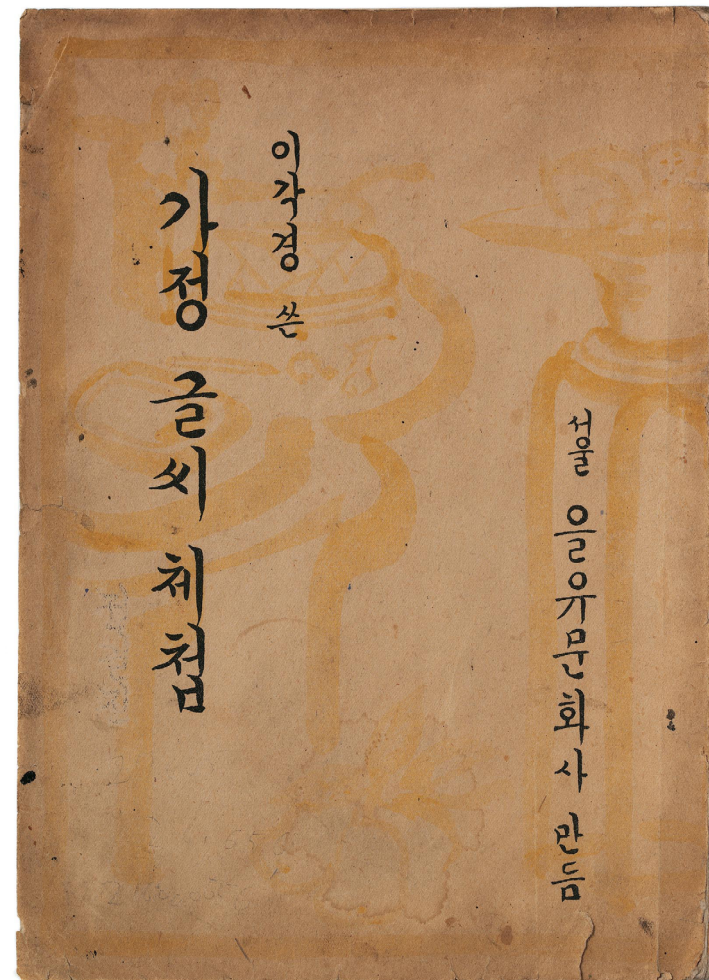 이각경 쓴
가정 글씨 체첩
서울 을유문화사 만듬